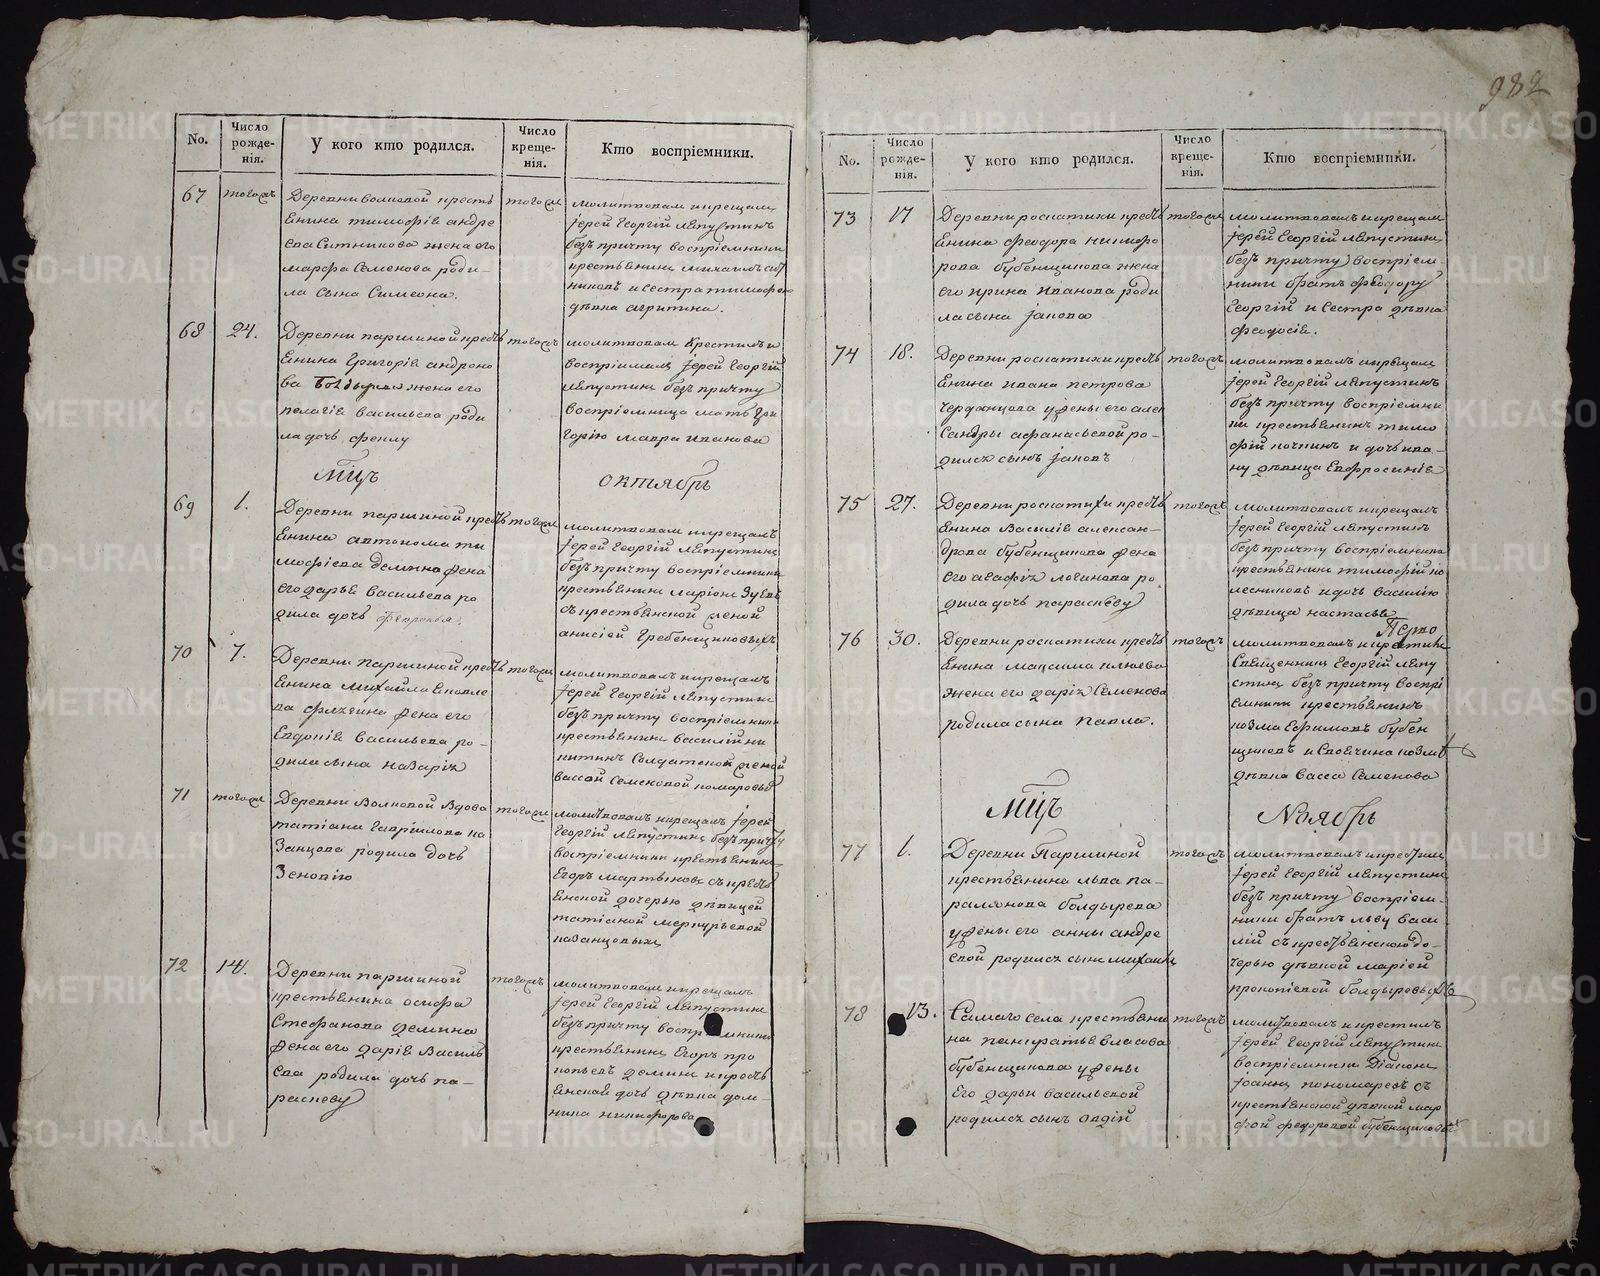 982
No.
Число рожде-нія.
У кого кто родился.
Число креще-нія.
Кто воспріемники.
67
тогожъ
Деревни волковой кресть
янина тимофѣя андре
ева Ситникова жена его
марфа Семенова роди-
ла сына Симеона.
тогожъ
молитвовалъ и крещалъ
іерей Георгій Лепустинъ
безъ причту воспріемники
крестьянинъ михаилъ сит
никовъ и Сестра тимофею
дѣвка агрипина.
68
24.
Деревни паршиной крестъ
янина Григорія андроно
ва Болдырева жена его
пелагія васильева роди
ла дочь феклу
тогожъ
молитвовалъ Крестилъ и
воспріималъ іерей Георгій
Лепустинъ безъ причту
воспріемница мать Гри
горію мавра иванова
Мцъ
октябрь
69
1.
Деревни паршиной крестъ
янина автонома ти
мофѣева демина жена
его дарья васильева ро
дила дочь
тогожъ
молитвовалъ и крещалъ
іерей Георгій Лепустинъ
безъ причту воспріемники
крестьянинъ ларіонъ Зуевъ
съ крестьянской женой
анисіей Гребенщиковыхъ
70
7.
Деревни паршиной крестъ
янина михайла
жена его
Евдокія васильева ро-
дила сына назарія
тогожъ
молитвовалъ и крещалъ
іерей Георгій Лепустинъ
безъ причту воспріемники
крестьянинъ василій ни
китинъ Солдатской женой
вассой Семеновой комаровыхъ
71
тогожъ
Деревни Волковой Вдова
татіана гаврилова ка
занцова родила дочь
Зеновію
тогожъ
молитвовалъ и крещалъ іерей
Георгій Лепустинъ безъ причту
воспріемники крестьянинъ
Егоръ мартьяновъ съ крестъ
янской дочерью дѣвицей
татіаной меркурьевой
казанцовыхъ
72
14.
Деревни паршиной
крестьянина осифа
Стефанова демина
жена его дарія Василь
ева родила дочь па-
раскеву
тогожъ
молитвовалъ и крещалъ
іерей Георгій Лепустинъ
безъ причту воспріемники
крестьянинъ Егоръ про
копьевъ деминъ и кресть
янская дочь дѣвка дом-
ника никифорова
No.
Число рожде-нія.
У кого кто родился.
Число креще-нія.
Кто воспріемники.
73
17
Деревни роскатихи крестъ
янина феодора никифо
рова бубенщикова жена
его ирина иванова роди
ла сына іакова
тогожъ
молитвовалъ и крещалъ
іерей Георгій Лепустинъ
безъ причту воспріем-
ники братъ феодору
Георгій и Сестра дѣвка
феодосія.
74
18.
Деревни роскатихи крестъ
янина ивана петрова
чердынцова у жены его алек
сандры афанасьевой ро-
дился сынъ іаковъ
тогожъ
молитвовалъ и крещалъ
іерей Георгій Лепустинъ
безъ причту воспріемни
ки крестьянинъ тимо
фій и дочь ива
ну дѣвица Евфросинія
75
27.
Деревни роскатихи крестъ
янина Василія алексан-
дрова бубенщикова жена
его агафія логинова ро
дила дочь параскеву
тогожъ
молитвовалъ и крещалъ
іерей Георгій Лепустинъ
безъ причту воспріемники
крестьянинъ тимофій ко
лесниковъ и дочь василію
дѣвица настасья
76
30.
Деревни роскатихи крестъ
янина максима клюева
жена его дарія Семенова
родила сына павла.
тогожъ
молитвовалъ и крестилъ
Священникъ Георгій Лепу
стинъ безъ причту воспрі
емники крестьянинъ
козма Ефимовъ бубен
щиковъ и Своячина козмѣ
дѣвка васса Семенова
Мцъ
Ноябрь
77
1.
Деревни Паршиной
крестьянина льва па-
рамонова болдырева
у жены его анны андре
евой родился сынъ михаилъ
тогожъ
молитвовалъ и крестилъ
іерей Георгій Лепустинъ
безъ причту воспріем-
ники братъ льву васи
лій съ крестьянскою до-
черью дѣвкой маріей
прокопіевой болдыровыхъ
78
13.
Самаго села крестьяни
на панкратья власова
бубенщикова у жены
Его дарьи васильевой
родился сынъ авдій
тогожъ
молитвовалъ и крестилъ
іерей Георгій Лепустинъ
воспріемники Діаконъ
іоаннъ пономаревъ съ
крестьянской дѣвкой мар
фой федоровой бубенщиковыхъ